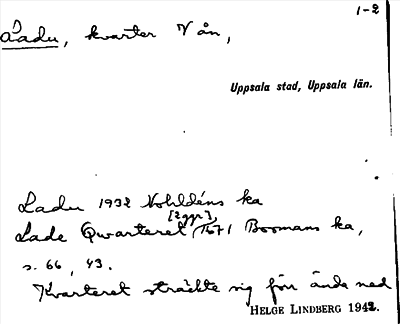 1-2
Ladu, kvarter V ån,
Uppsala stad, Uppsala län.
Ladu 1932 Nohldéns ka
[2ggr],
Lade Qwarteret 1671 Bosmans ka,
s. 66, 43.
Kvarteret sträckte sig förr ända ned
HELGE LINDBERG 1942.